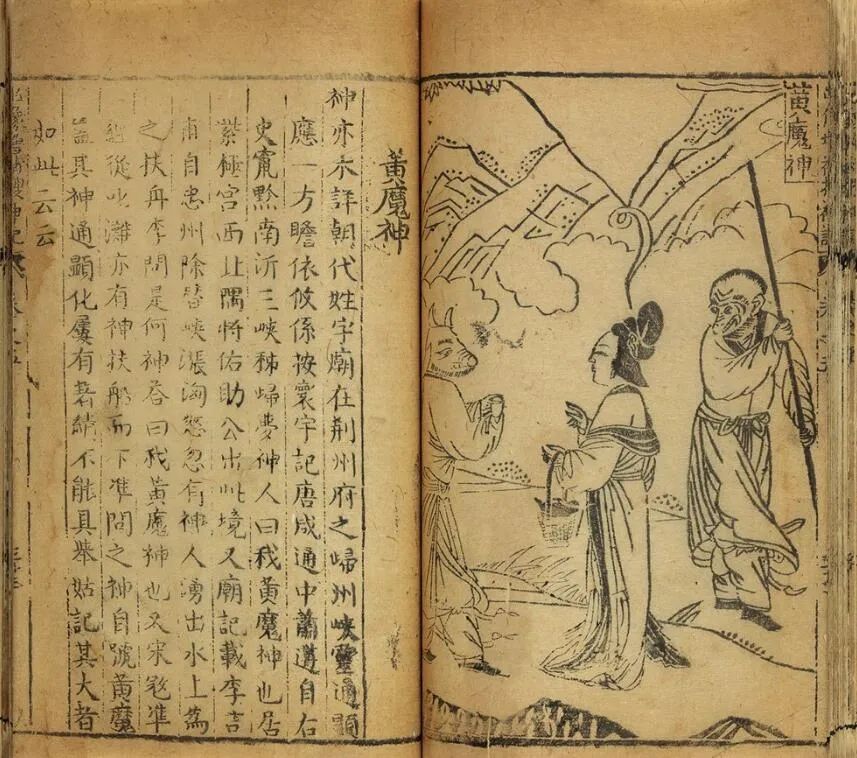 黃魔神
黃魔神
神亦不詳朝代姓字廟在荆州府之歸州峽靈通顯
應一方瞻依攸係按寰宇記唐咸通中蕭遘自右
史竄黔南泝三峽秭歸夢神人曰我黃魔神也居
紫極宮西北隅將佑助公出此境又廟記載李吉
甫自忠州除替峽漲洶怒忽有神人湧出水上爲
之扶舟李問是何神答曰我黃魔神也又宋寇準
經從叱灘亦有神扶船而下準問之神自號黃魔
蓋其神通顯化屢有著績不能具舉姑記其大者
如此云云